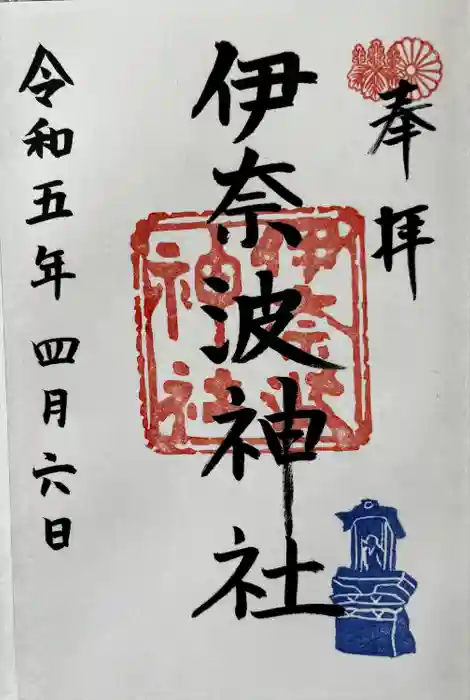 奉拝
伊奈波神社
伊奈波
神社
令和五年 四月六日